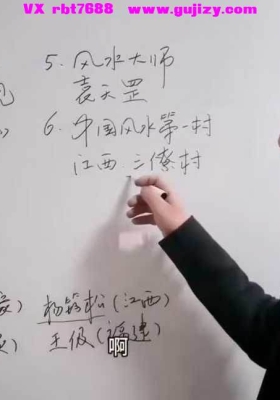 VX rbt7688 www.gujizy.com
5. 风水大师
袁天罡
6. 中国风水第一村
江西.三僚村
杨筠松(江西)
王伋(福建)
啊